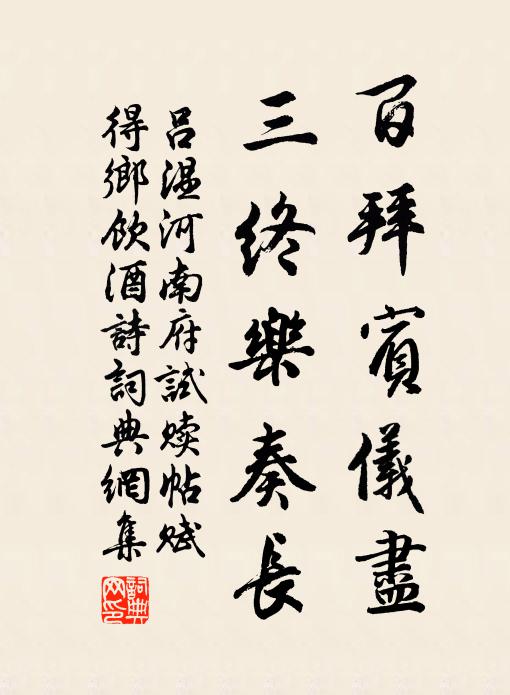 百拜賓儀盡
三終樂奏長
呂溫河南府試赎帖賦
得鄉飲酒詩詞典網集
詞典網印